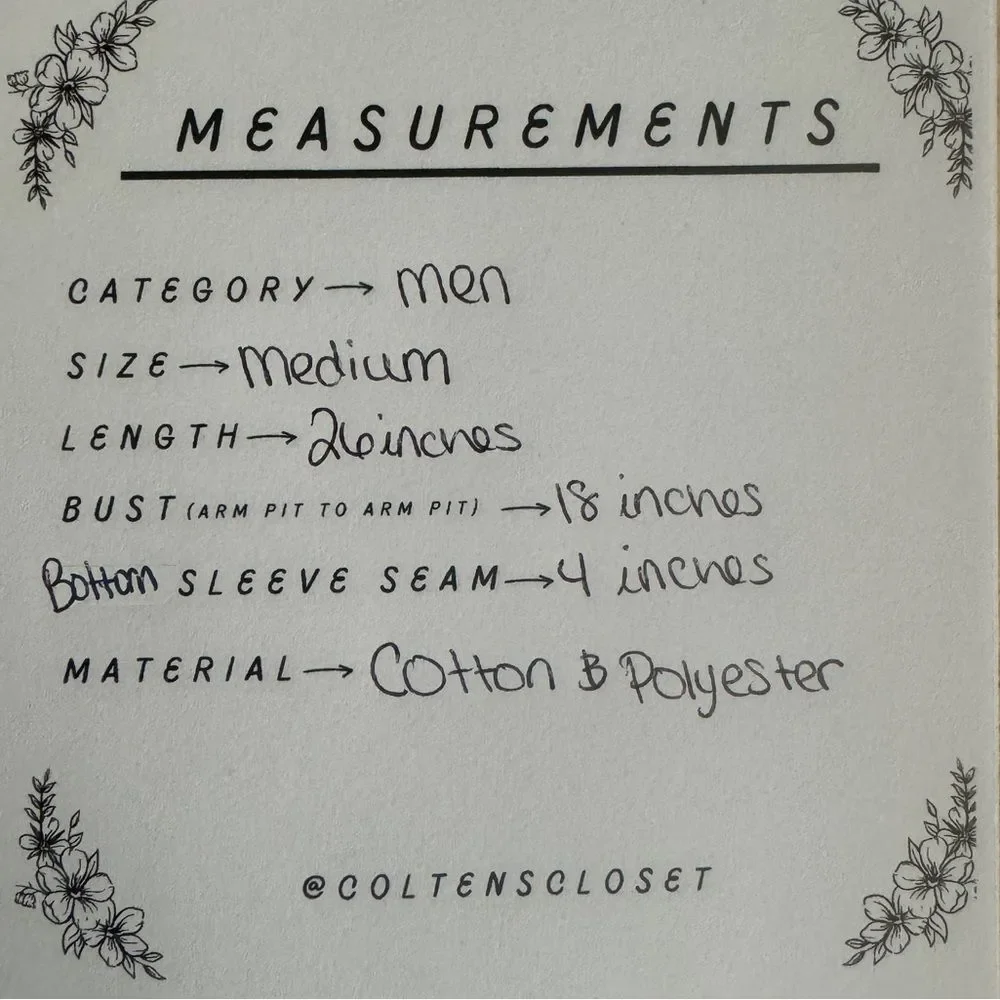 MEASUREMENTS
CATEGORY → men
SIZE → Medium
LENGTH → 26 inches
BUST (ARM PIT TO ARM PIT) → 18 inches
Bottom SLEEVE SEAM → 4 inches
MATERIAL → Cotton & Polyester
@COLTENSCLOSET